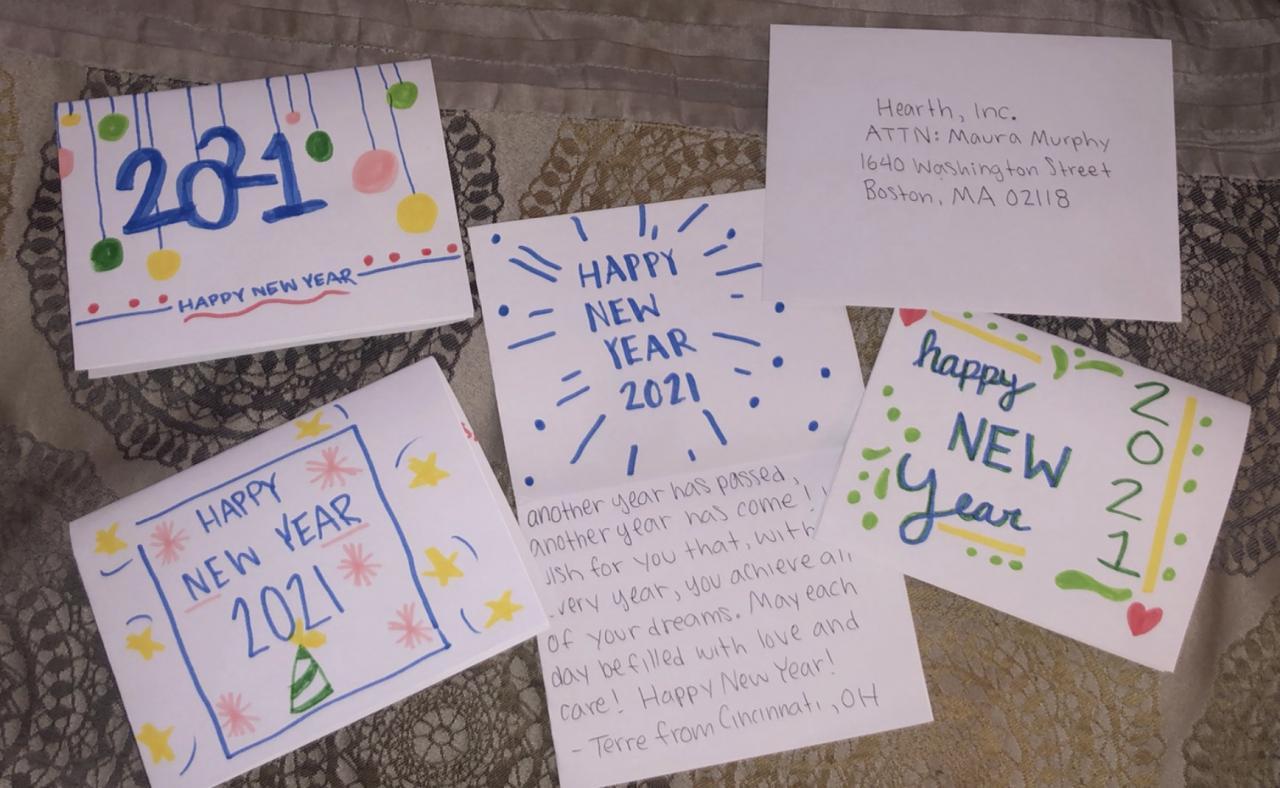 2021
HAPPY NEW YEAR
Hearth, Inc.
ATTN: Maura Murphy
1640 Washington Street
Boston, MA 02118
HAPPY
NEW
YEAR
2021
another year has passed,
another year has come!
wish for you that, with
every year, you achieve all
of your dreams. May each
day be filled with love and
care! Happy New Year!
- Terre from Cincinnati, OH
HAPPY
NEW YEAR
2021
happy
NEW
Year
2
0
2
1